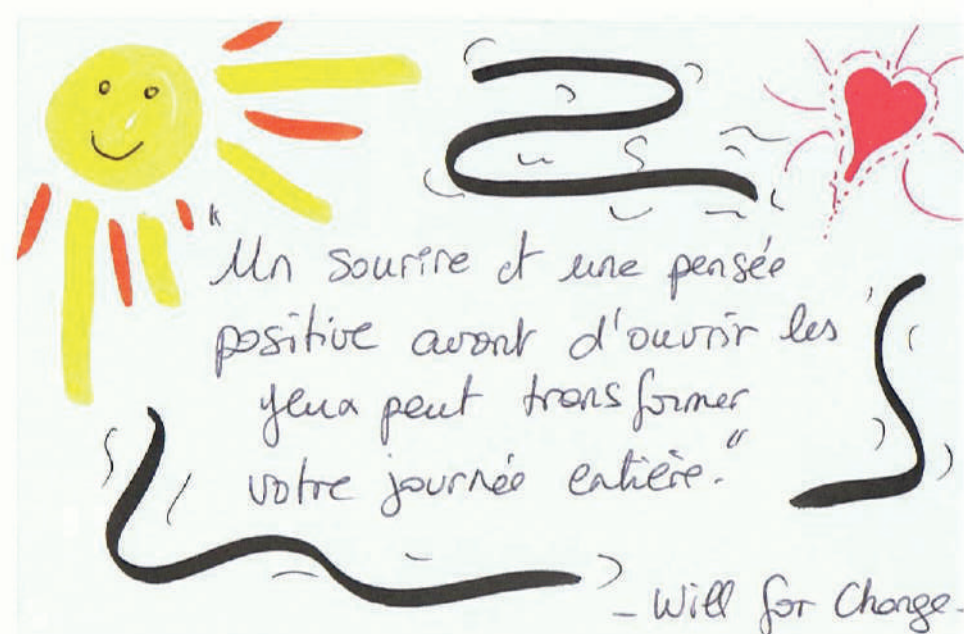 "Un sourire et une pensée
positive avant d'ouvrir les
yeux peut transformer
votre journée entière."
- Will for Change -